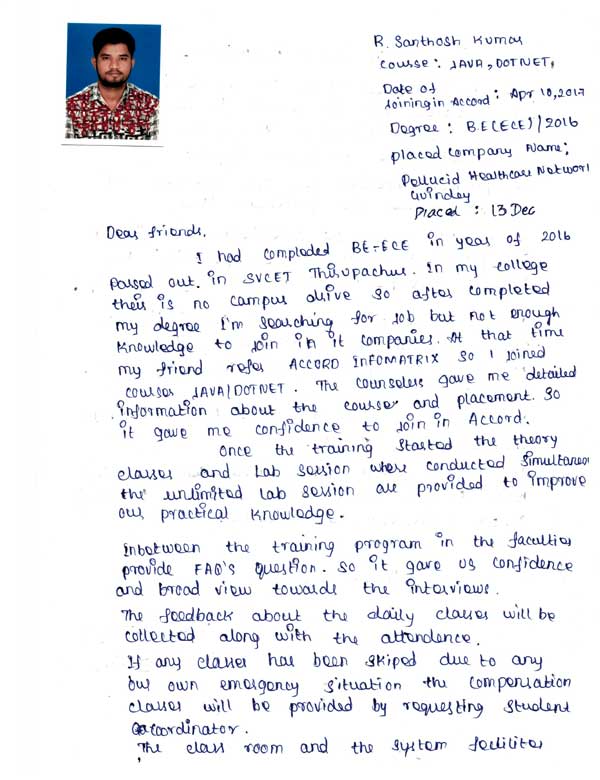 R. Santhosh Kumar
Course : JAVA, DOTNET,
Date of
Joining in Accord : Apr 10, 2017
Degree : B.E(ECE)/2016
placed company Name:
Pellucid Healthcare Network
Guindey
Placed : 13 Dec
Dear friends,
I had compleded BE-ECE in year of 2016
Passed out. in SVCET Thirupachur. In my college
their is no campus drive so after completed
my degree I'm searching for Job but not enough
knowledge to Join in it companies. At that time
my friend refer ACCORD INFOMATRIX so I Joined
courses JAVA/DOTNET. The counselers gave me detailed
information about the course and placement. So
it gave me confidence to Join in Accord.
Once the training started the theory
classes and Lab session where conducted simultaneo
the unlimited Lab session are provided to improve
our practical knowledge.
inbetween the training program in the faculties
provide FAQ'S question. so it gave us confidence
and broad view towards the interviews.
The feedback about the daily classes will be
collected along with the attendence.
If any classes has been skiped due to any
our own emergency situation the compensation
classes will be provided by requesting student
coordinator.
The class room and the system facilites